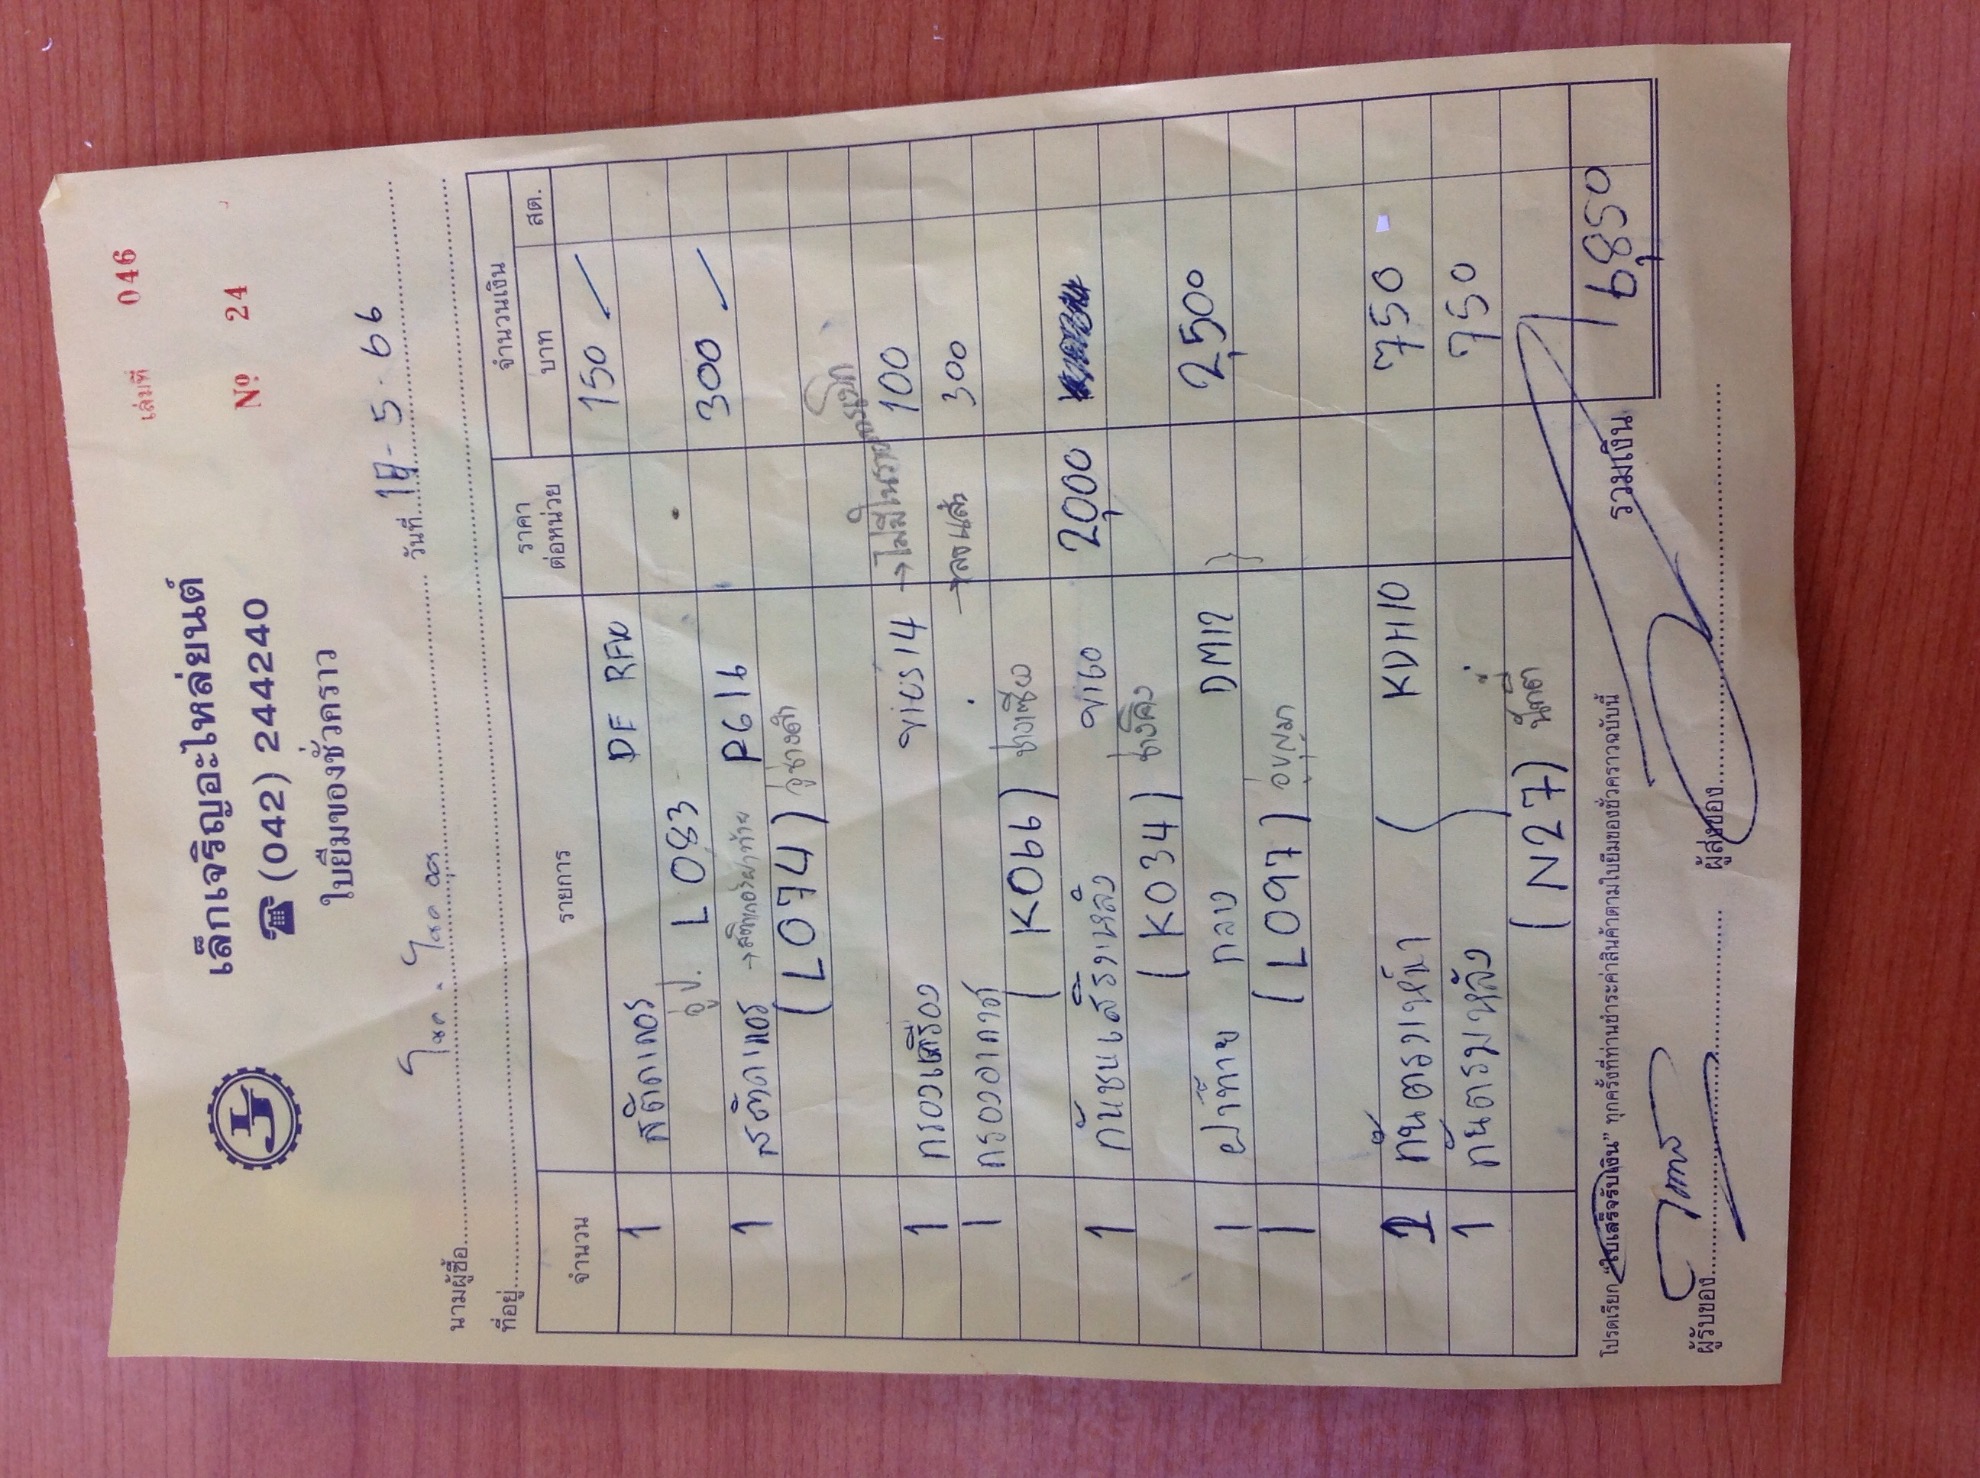 เล่มที่ 046
เล็กเจริญอะไหล่ยนต์
☎ (042) 244240
Nº 24
ใบยืมของชั่วคราว
นามผู้ซื้อ วันที่ - 5 - 66
ที่อยู่
จำนวน รายการ ราคาต่อหน่วย จำนวนเงิน
บาท สต.
1 สติดเกอร์ DF 150 -
อู่ป. L083
1 สติดเกอร์ →สติกเกอร์ฝาท้าย P616 300 -
(L074) อู่ช่างดำ
1 กรองเครื่อง 14 →ไม่มีในรายการเบิก 100
1 กรองอากาศ →ลงแล้ว 300
(K066)
1 กันชนเสริมหลัง 2,000
(K034)
1 ฝาท้าย กลาง DM12 2,500
1 (L097)
1 กันตรมหน้า KDH10 750
1 กันตรมหลัง 750
(N27)
โปรดเรียก "ใบเสร็จรับเงิน" ทุกครั้งที่ท่านชำระค่าสินค้าตามใบยืมของชั่วคราวฉบับนี้
รวมเงิน 6,850
ผู้รับของ ผู้ส่งของ